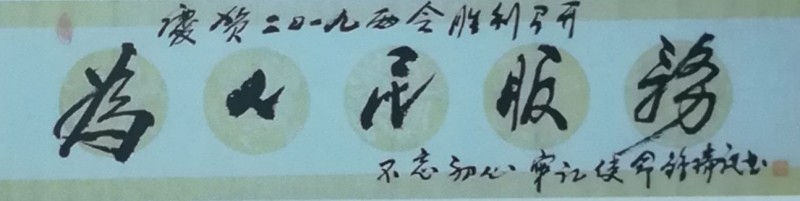 庆贺二〇一九两会胜利召开
为人民服務
不忘初心 牢记使命 書